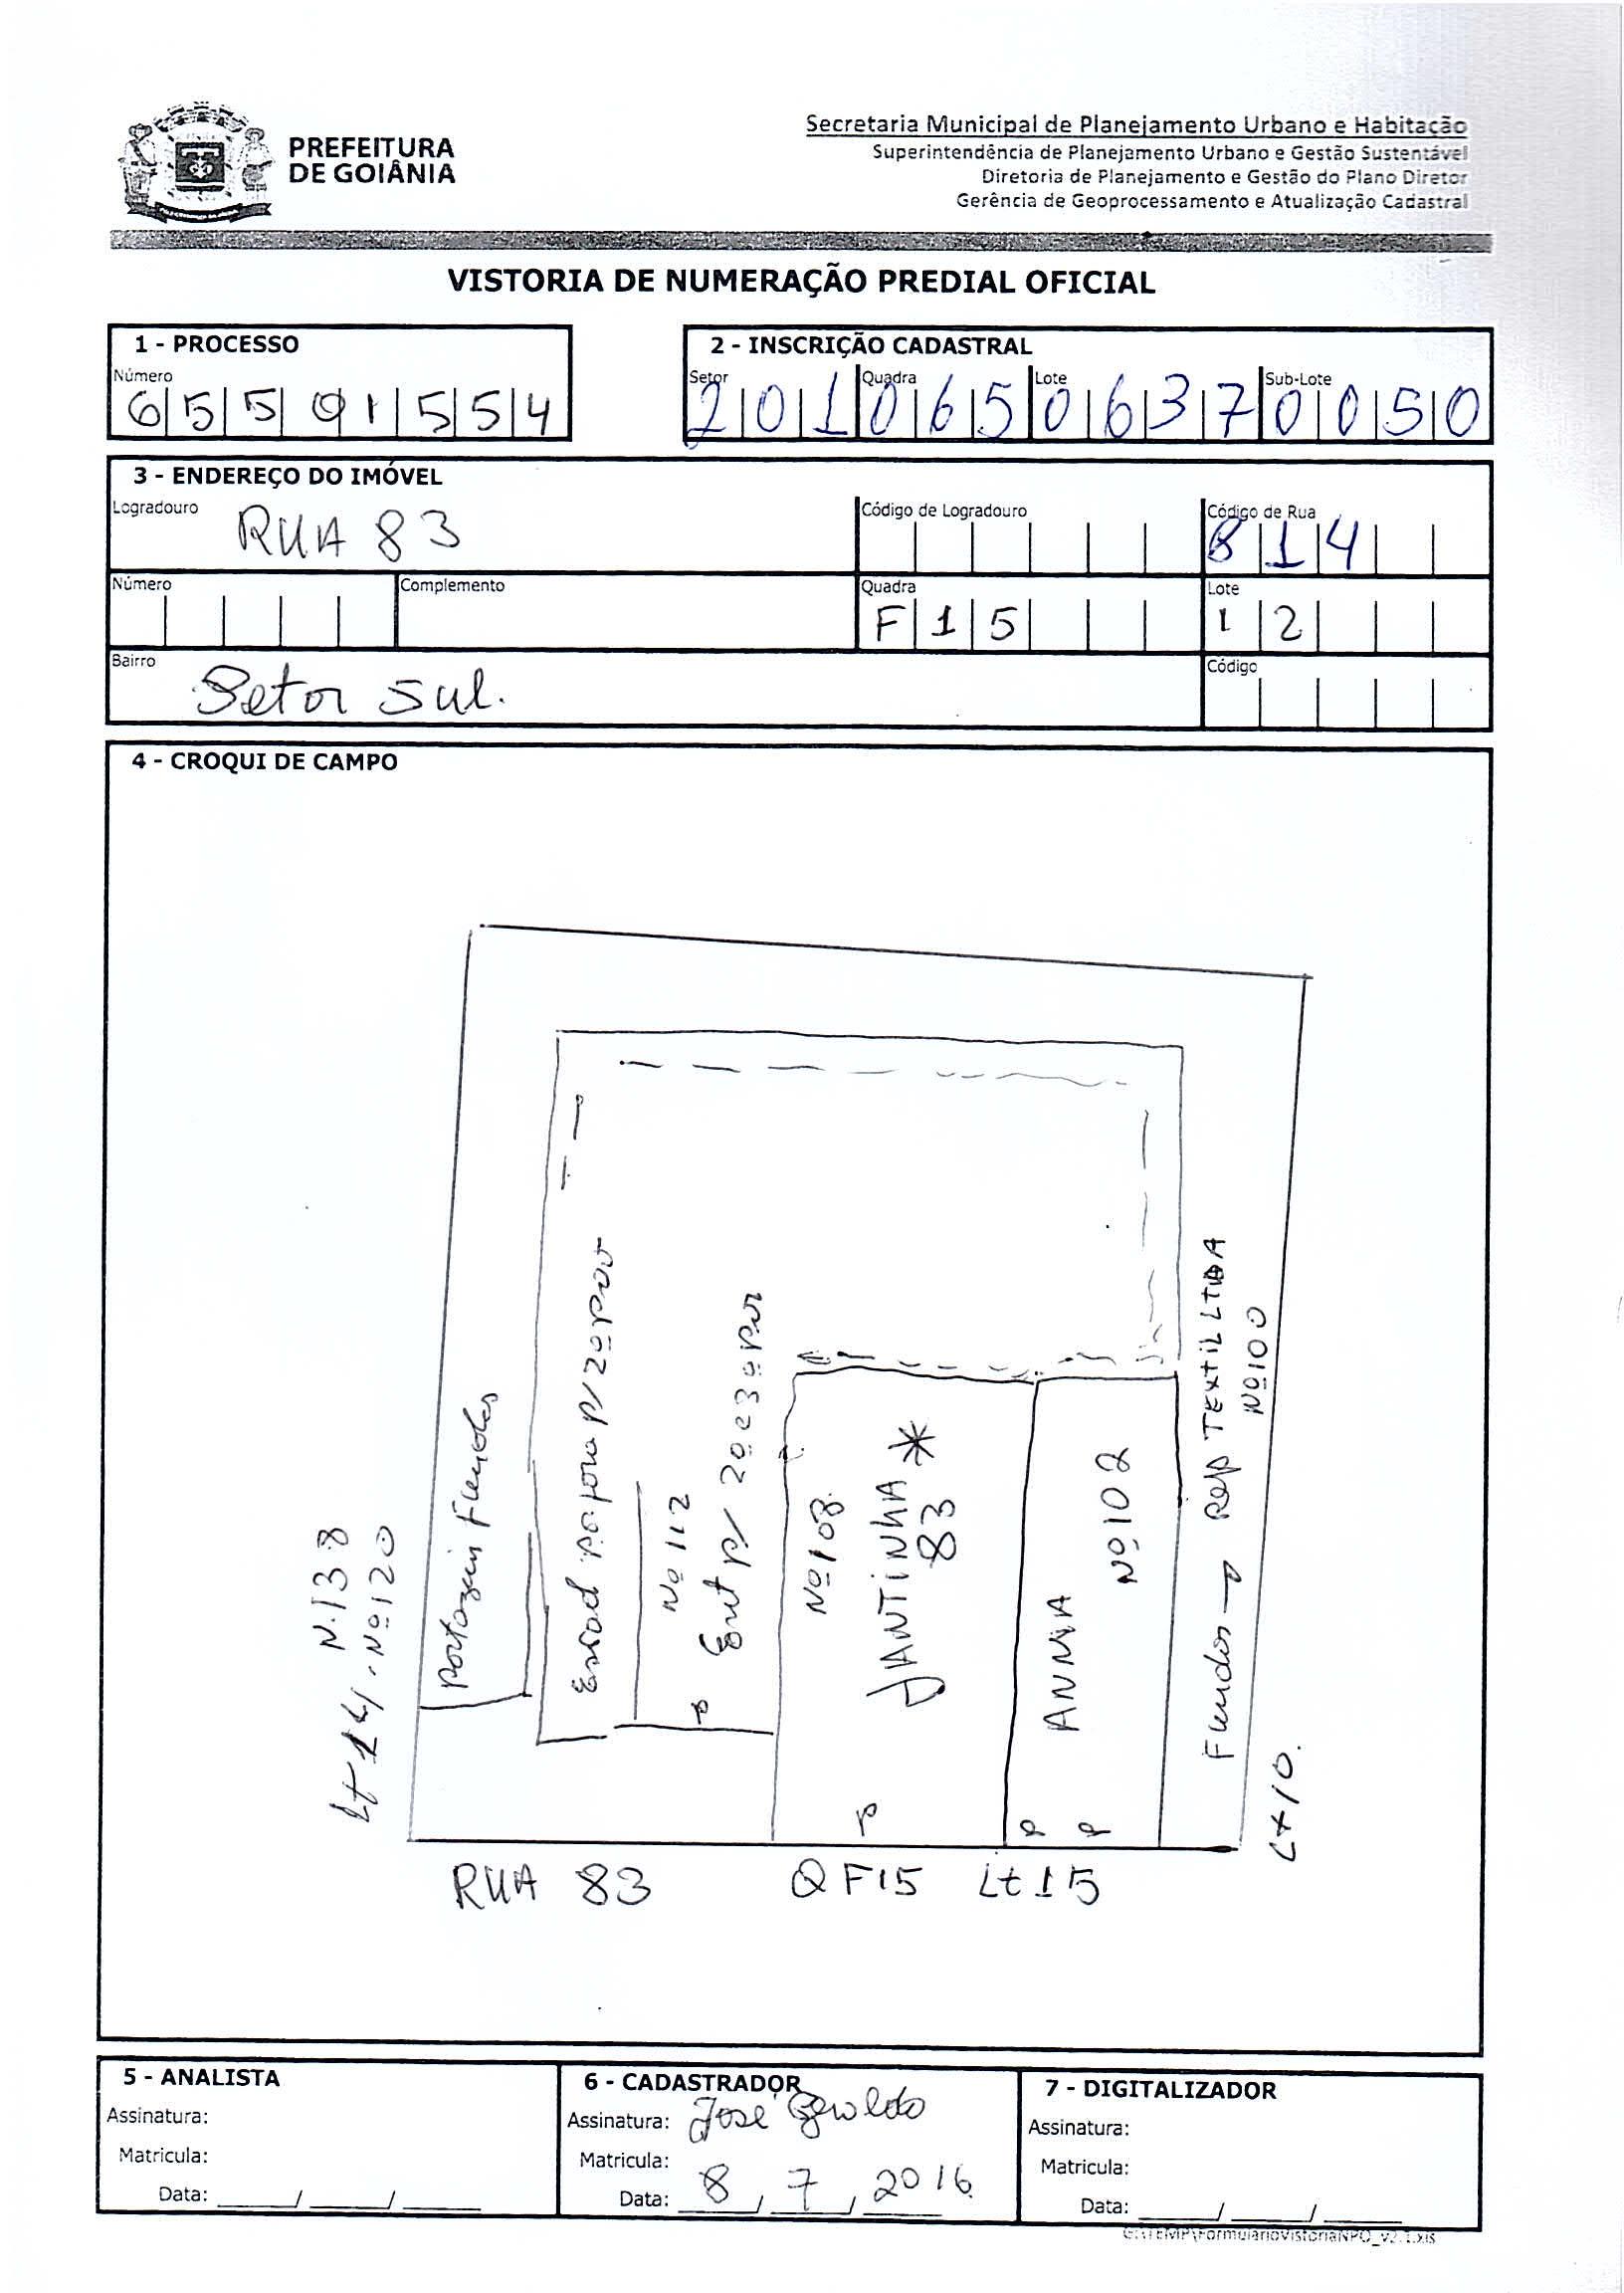 PREFEITURA
DE GOIÂNIA
Secretaria Municipal de Planejamento Urbano e Habitação
Superintendência de Planejamento Urbano e Gestão Sustentável
Diretoria de Planejamento e Gestão do Plano Diretor
Gerência de Geoprocessamento e Atualização Cadastral
VISTORIA DE NUMERAÇÃO PREDIAL OFICIAL
1 - PROCESSO
Número
65591554
2 - INSCRIÇÃO CADASTRAL
Setor Quadra Lote Sub-Lote
20106506370050
3 - ENDEREÇO DO IMÓVEL
Logradouro RUA 83
Código de Logradouro
Código de Rua
814
Número
Complemento
Quadra
F15
Lote
12
Bairro
Setor Sul.
Código
4 - CROQUI DE CAMPO
N.138
Lt 14, Nº120
Portazein Fundos
Escad p/ 2º Pav
Nº 112
Ent p/ 2º e 3º Pav
Nº108
JANTINHA *
83
ANNIA
Nº102
Fundos → Rep TEXTIL LTDA
Nº100
Lt 10.
RUA 83 Q F15 Lt 15
5 - ANALISTA
Assinatura:
Matricula:
Data: / /
6 - CADASTRADOR
Assinatura: José Geraldo
Matricula:
Data: 8 / 7 / 2016
7 - DIGITALIZADOR
Assinatura:
Matricula:
Data: / /
G:\TEMP\FormularioVistoriaNPO_v2.1.xls